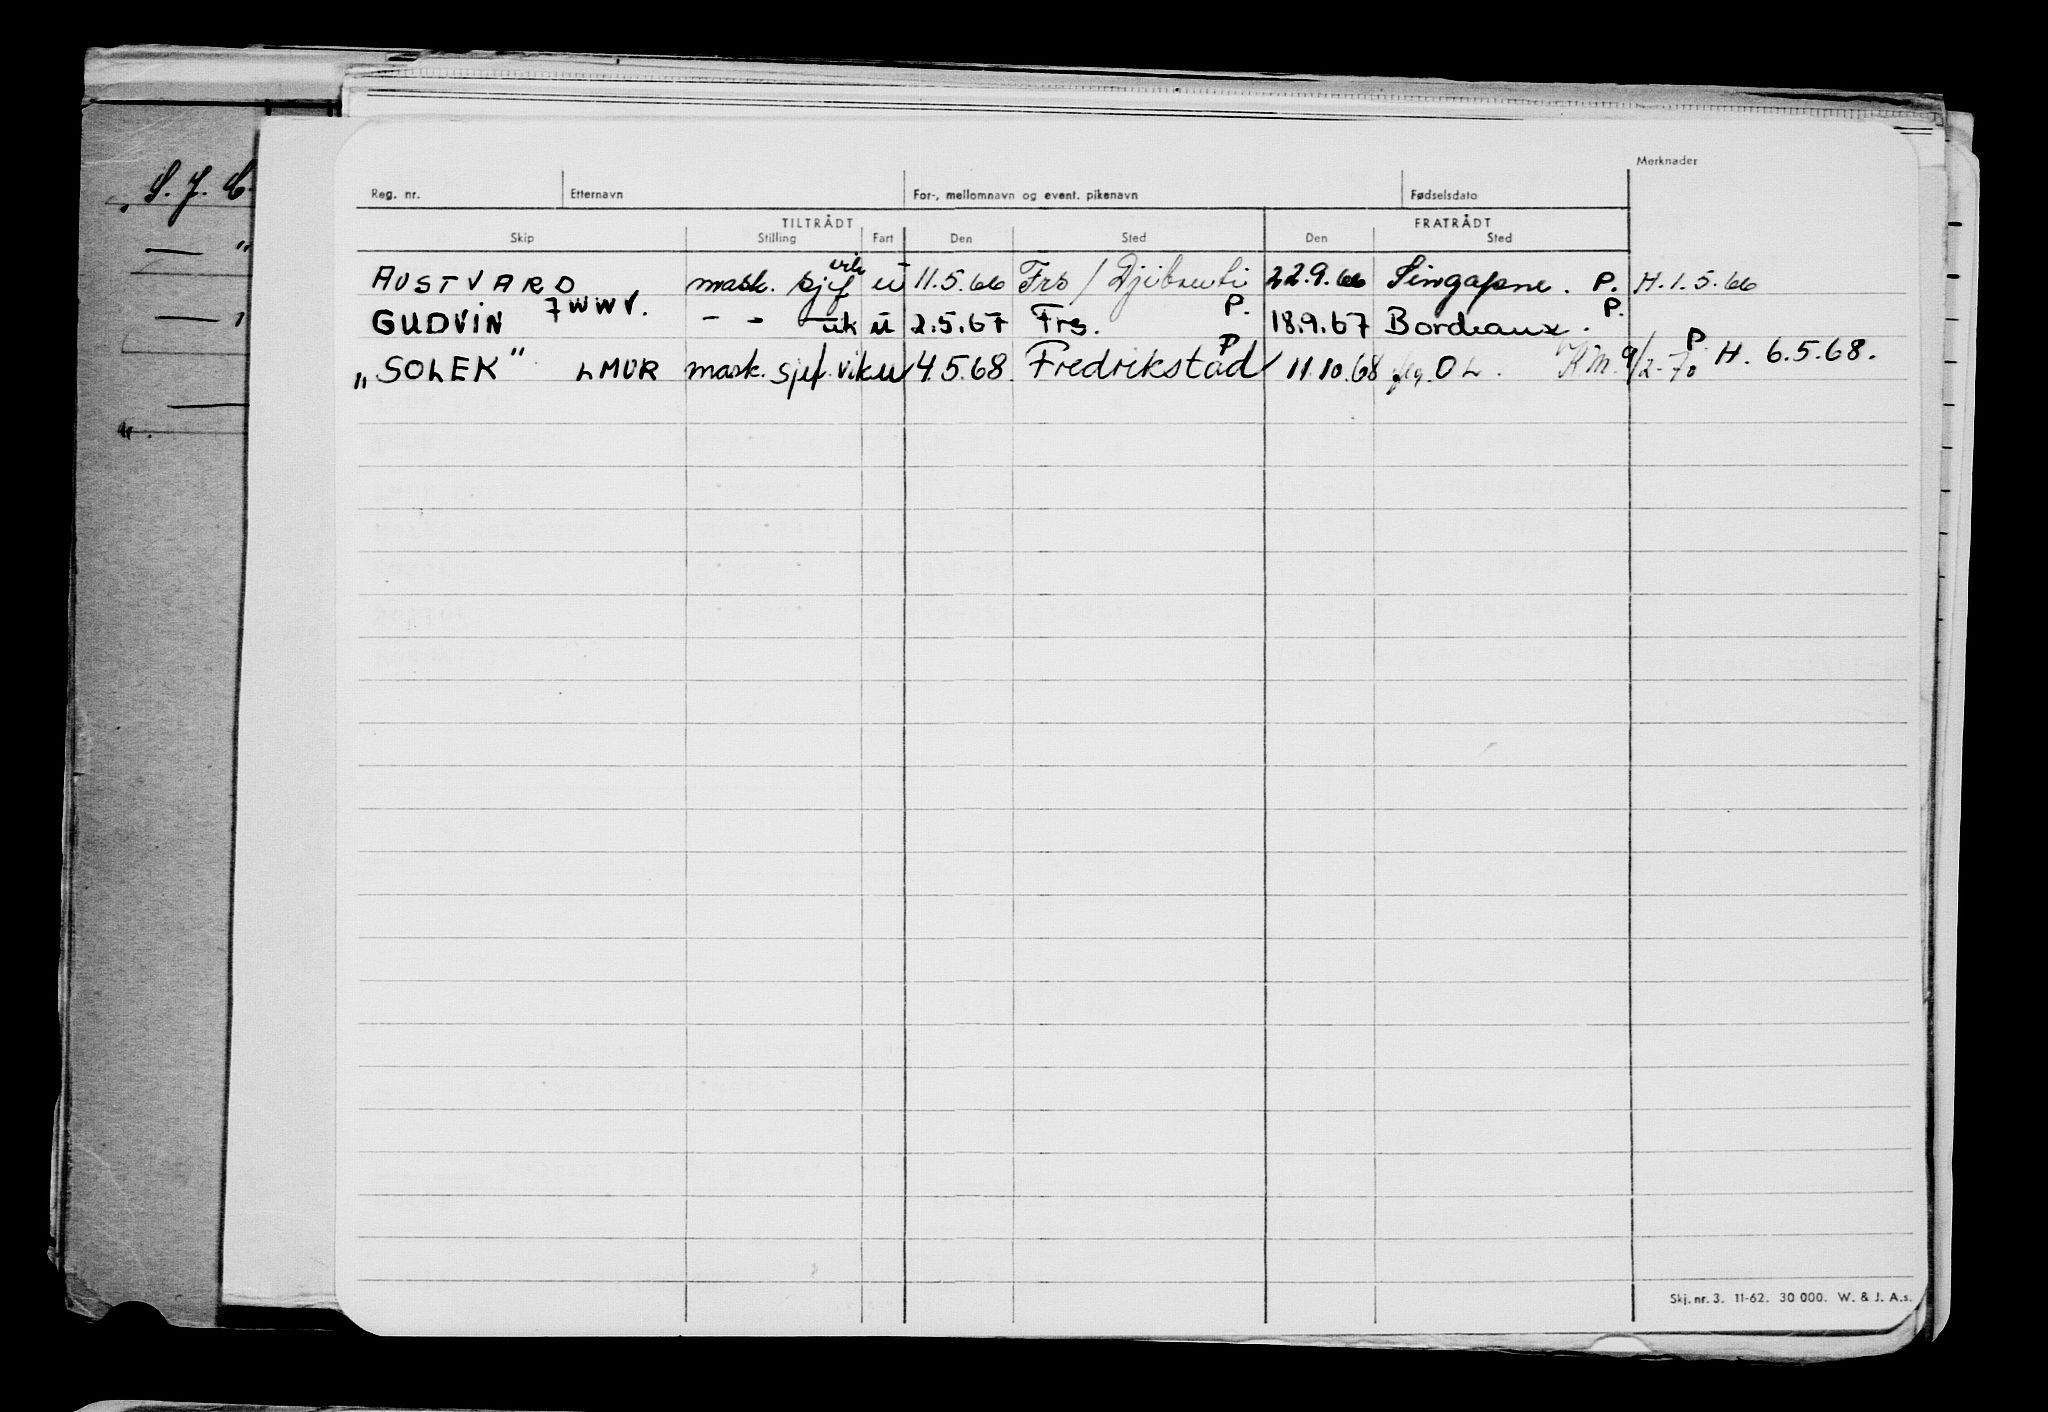 Merknader
Reg. nr. Etternavn For-, mellomnavn og event. pikenavn Fødselsdato
TILTRÅDT FRATRÅDT
Skip Stilling Fart Den Sted Den Sted
AUSTVARD mask. sjef vik u 11.5.66 Frs / Djibouti 22.9.66 Singapore. P. H. 1.5.66
GUDVIN 7WWV. - - - vik u 2.5.67 Frs. P. 18.9.67 Bordeaux. P.
"SOLEK" LMUR mask. sjef. vik u 4.5.68 Fredrikstad P 11.10.68 OL. KM. 9/2-70 P H. 6.5.68.
S. J. C.
— "
— "
—
".
Skj. nr. 3. 11-62. 30 000. W. & J. A.s.